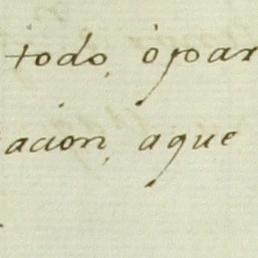 todo, ò par
acion, aque